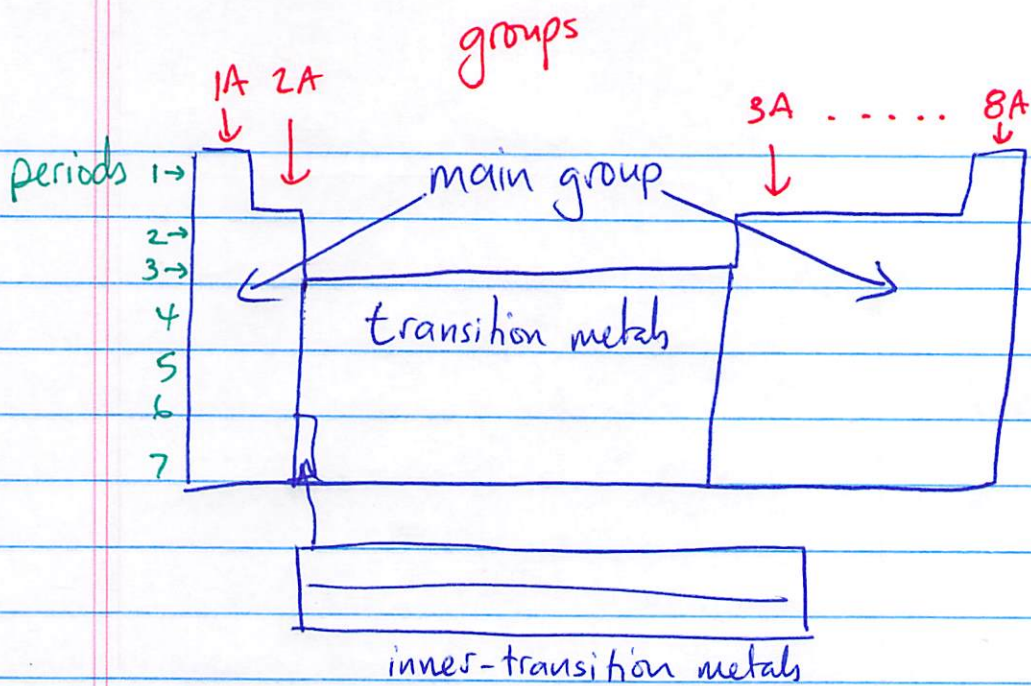 groups
1A 2A 3A ...... 8A
periods 1→ main group
2→
3→
transition metals
4
5
6
7
inner-transition metals